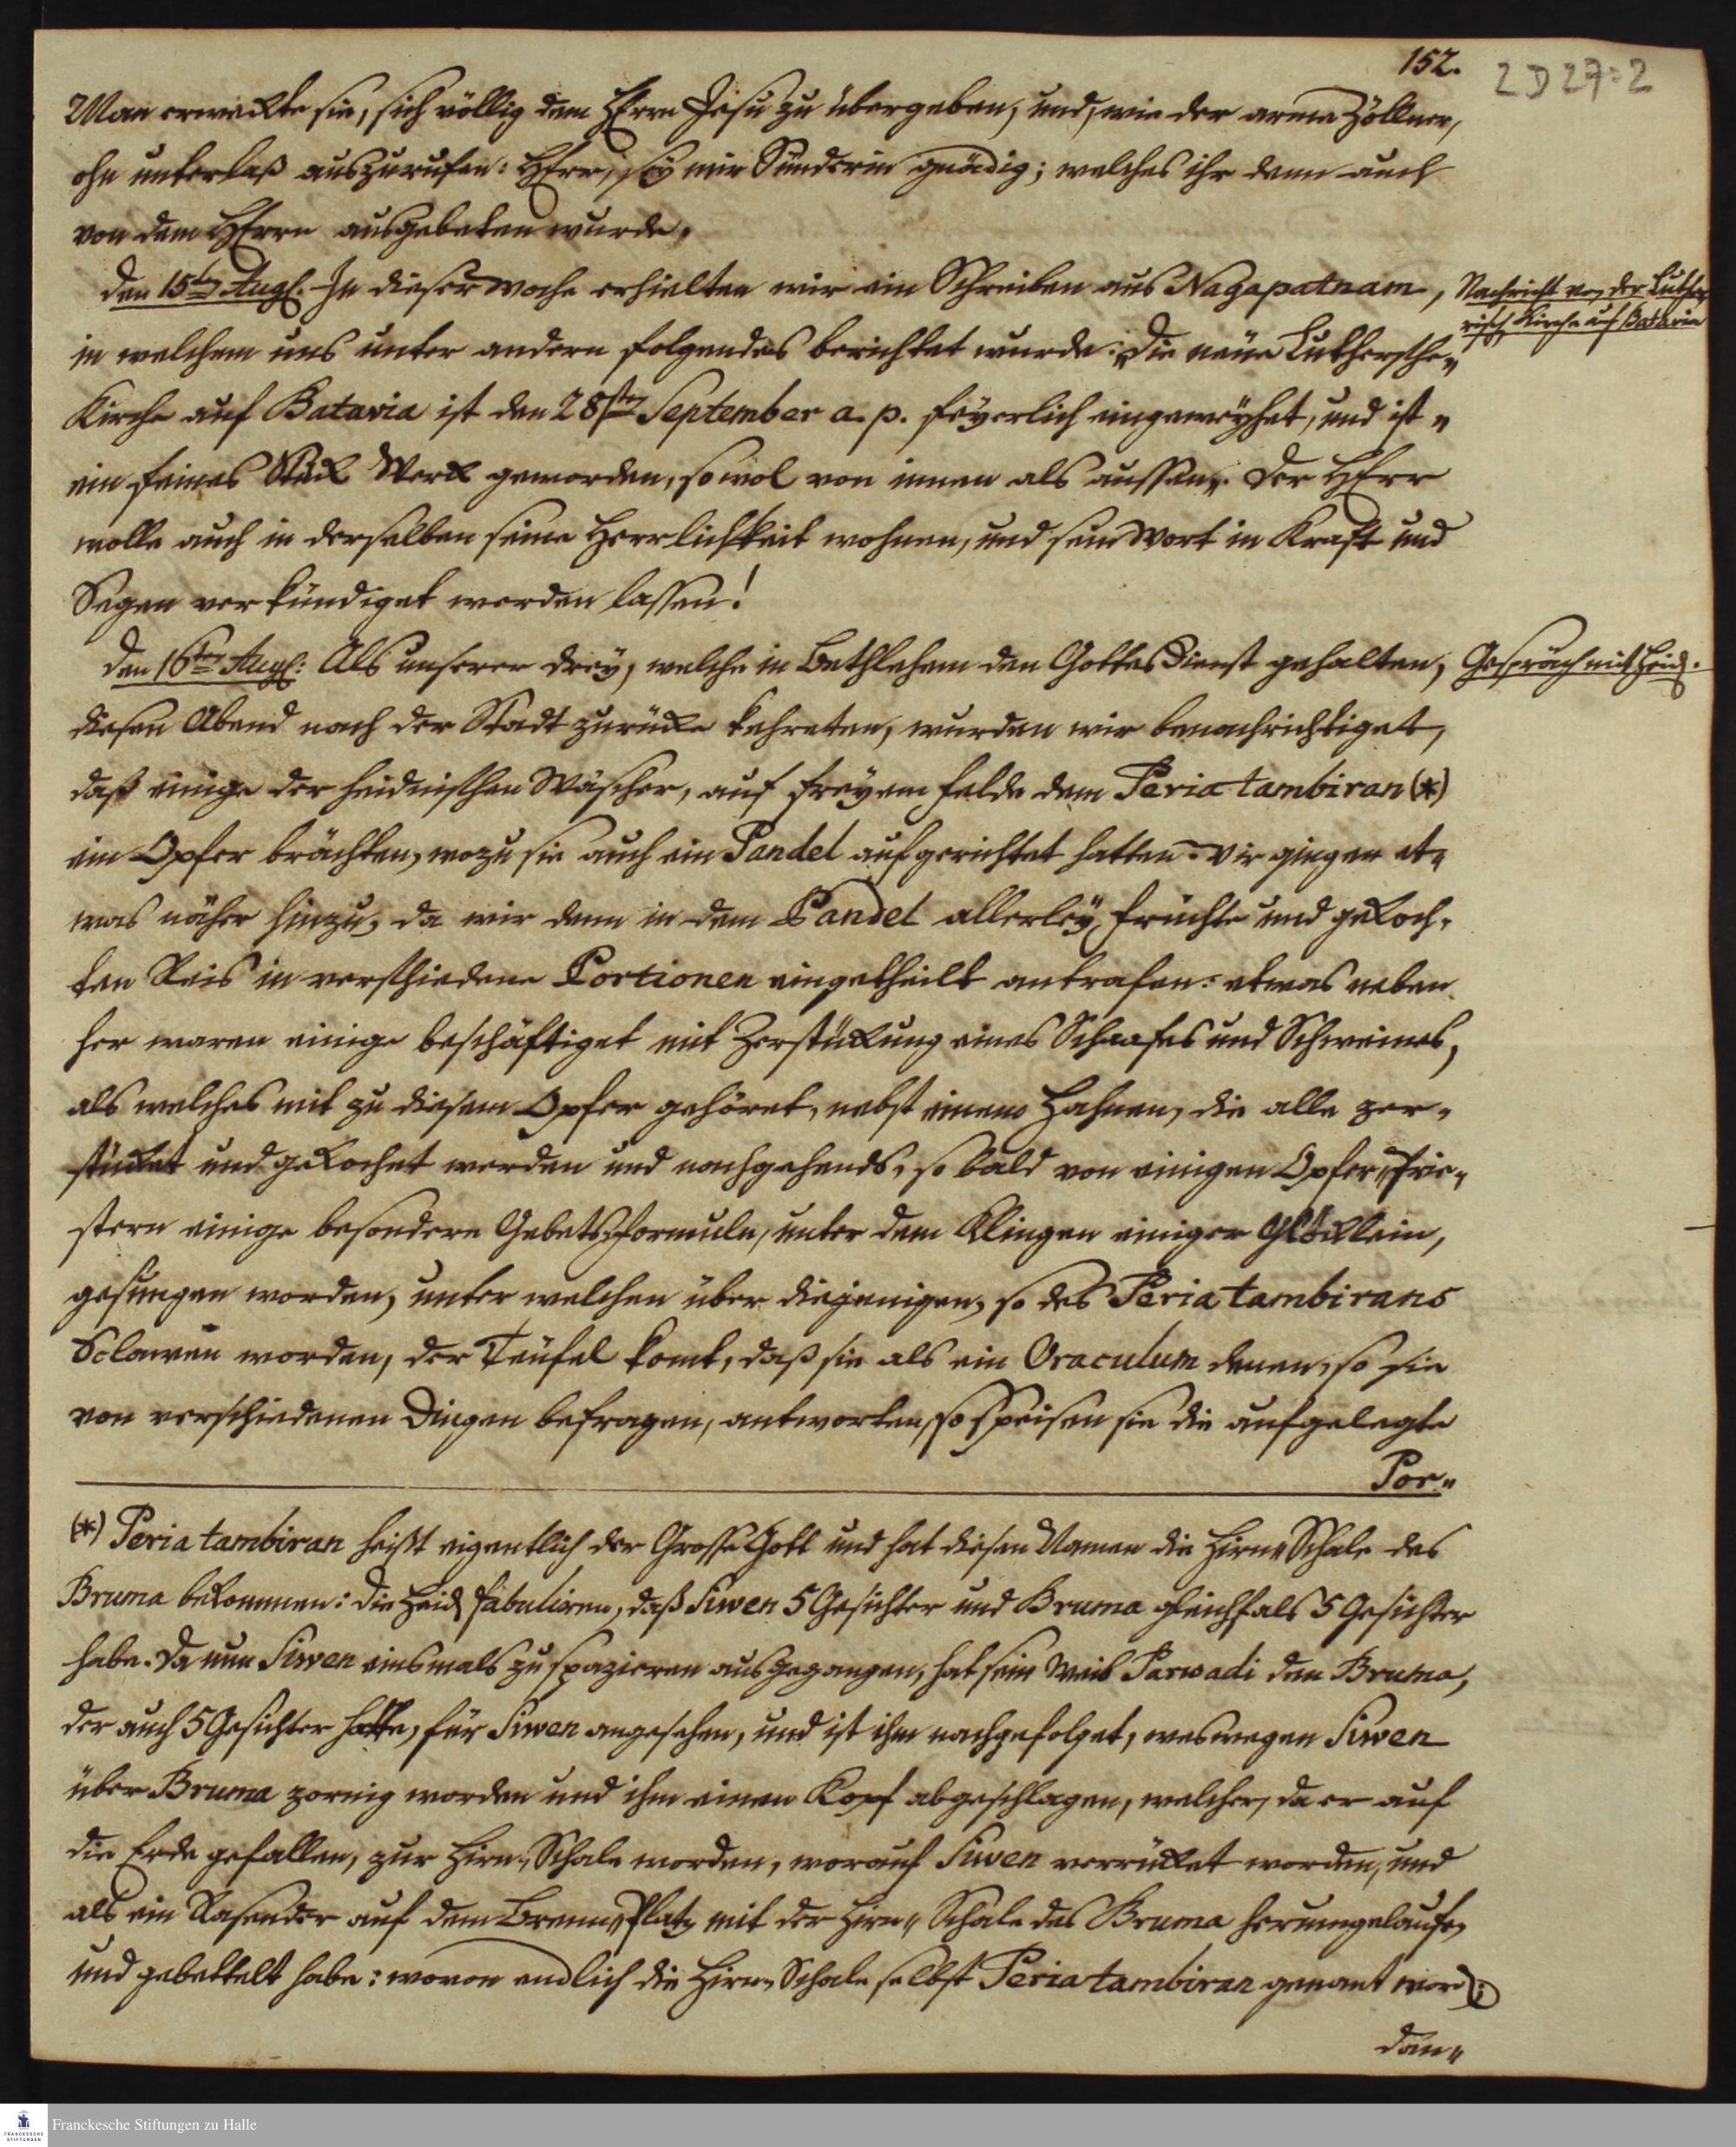 152.
2 D 27:2
Man erweckte sie, sich völlig dem HErrn Jesu zu übergeben, und, wie der arme Zöllner,
ohn unterlaß auszurufen: HErr, sey mir Sünderin gnädig; welches ihr denn auch
von dem HErrn ausgebeten wurde.
den 15ten Aug. In dieser Woche erhielten wir ein Schreiben aus Nagapatnam,
Nachricht von der Luthe-
risch. Kirche auf Batavia
in welchem uns unter andern folgendes berichtet wurde: „Die neue Luthersche „
Kirche auf Batavia ist den 28sten September a. p. feyerlich eingeweyhet, und ist „
ein feines Stück Werk geworden, so wol von innen als aussen„. Der HErr
wolle auch in derselben seine Herrlichkeit wohnen, und sein Wort in Kraft und
Segen verkündiget werden lassen!
Den 16ten Aug: Als unserer drey, welche in Bethlehem den Gottesdienst gehalten,
Gespräch mit Heid.
diesen Abend nach der Stadt zurücke kehreten, wurden wir benachrichtiget,
daß einige der heidnischen Wäscher, auf freyem Felde dem Peria tambiran (*)
ein Opfer brächten, wozu sie auch ein Pandel aufgerichtet hatten. Wir gingen et-
was näher hinzu, da wir denn in dem Pandel allerley Früchte und gekoch-
ten Reis in verschiedene Portionen eingetheilt antrafen: etwas neben
her waren einige beschäftiget mit Zerstückung eines Schaafes und Schweines,
als welches mit zu diesem Opfer gehöret, nebst einem Hahnen, die alle zer-
stücket und gekochet werden und nachgehends, so bald von einigen Opfer-Prie-
stern einige besondere Gebets-Formuln, unter dem Klingen einiger Glöcklein,
gesungen worden, unter welchen über diejenigen, so des Peria tambirans
Sclaven worden, der Teufel komt, daß sie als ein Oraculum denen, so sie
von verschiedenen Dingen befragen, antworten, so speisen sie die aufgelegte
Por-
(*) Peria tambiran heißt eigentlich der Grosse Gott und hat diesen Namen die Hirn-Schale des
Bruma bekommen: die Heid. fabuliren, daß Siwen 5 Gesichter und Bruma gleichfals 5 Gesichter
habe. Da nun Siwen einsmals zu spazieren ausgegangen, hat sein Weib Parwadi den Bruma,
der auch 5 Gesichter hatte, für Siwen angesehen, und ist ihm nachgefolget, weswegen Siwen
über Bruma zornig worden und ihm einen Kopf abgeschlagen, welcher, da er auf
die Erde gefallen, zur Hirn-Schale worden, worauf Siwen verrücket worden, und
als ein Rasender auf dem Brenn-Platz mit der Hirn-Schale des Bruma herumgelaufen
und gebettelt habe: wovon endlich die Hirn-Schale selbst Peria tambiran genant word.
dan-
Franckesche Stiftungen zu Halle